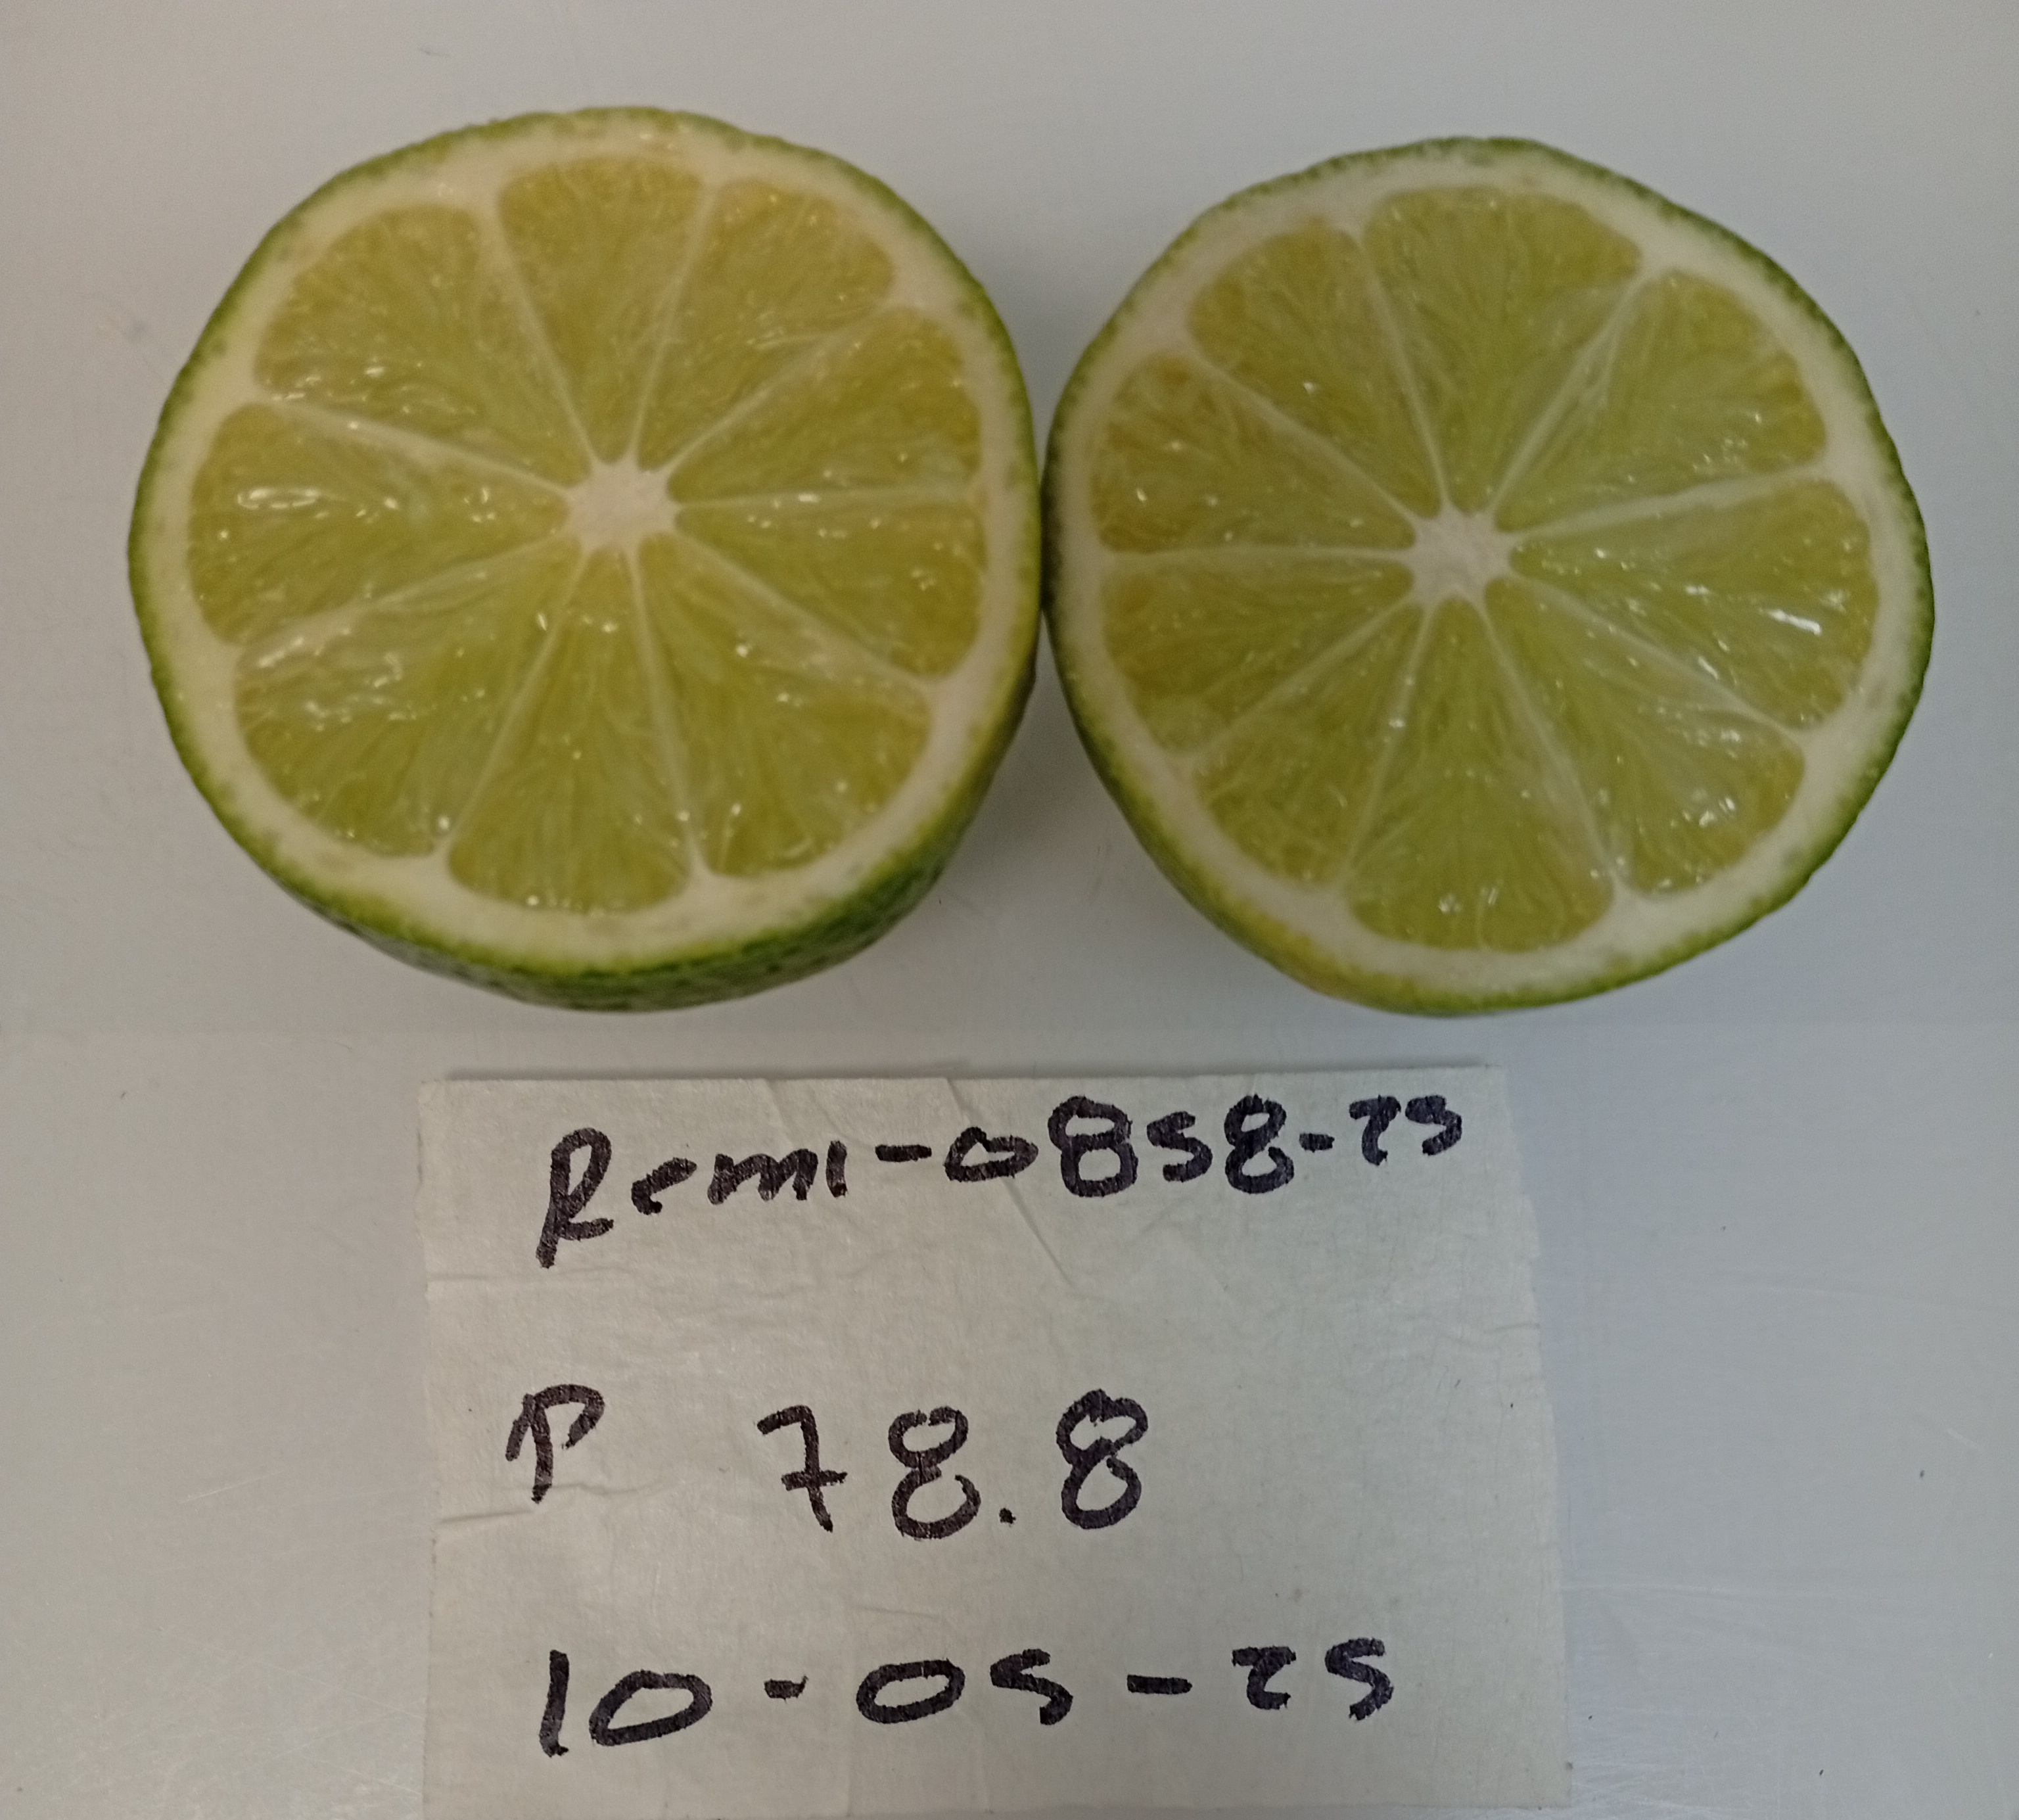 Remi-0858-25
P 78.8
10-05-25